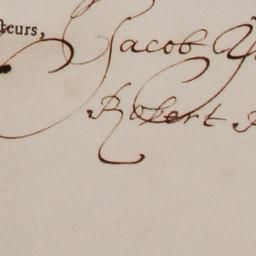 teurs,
Jacob
Robert